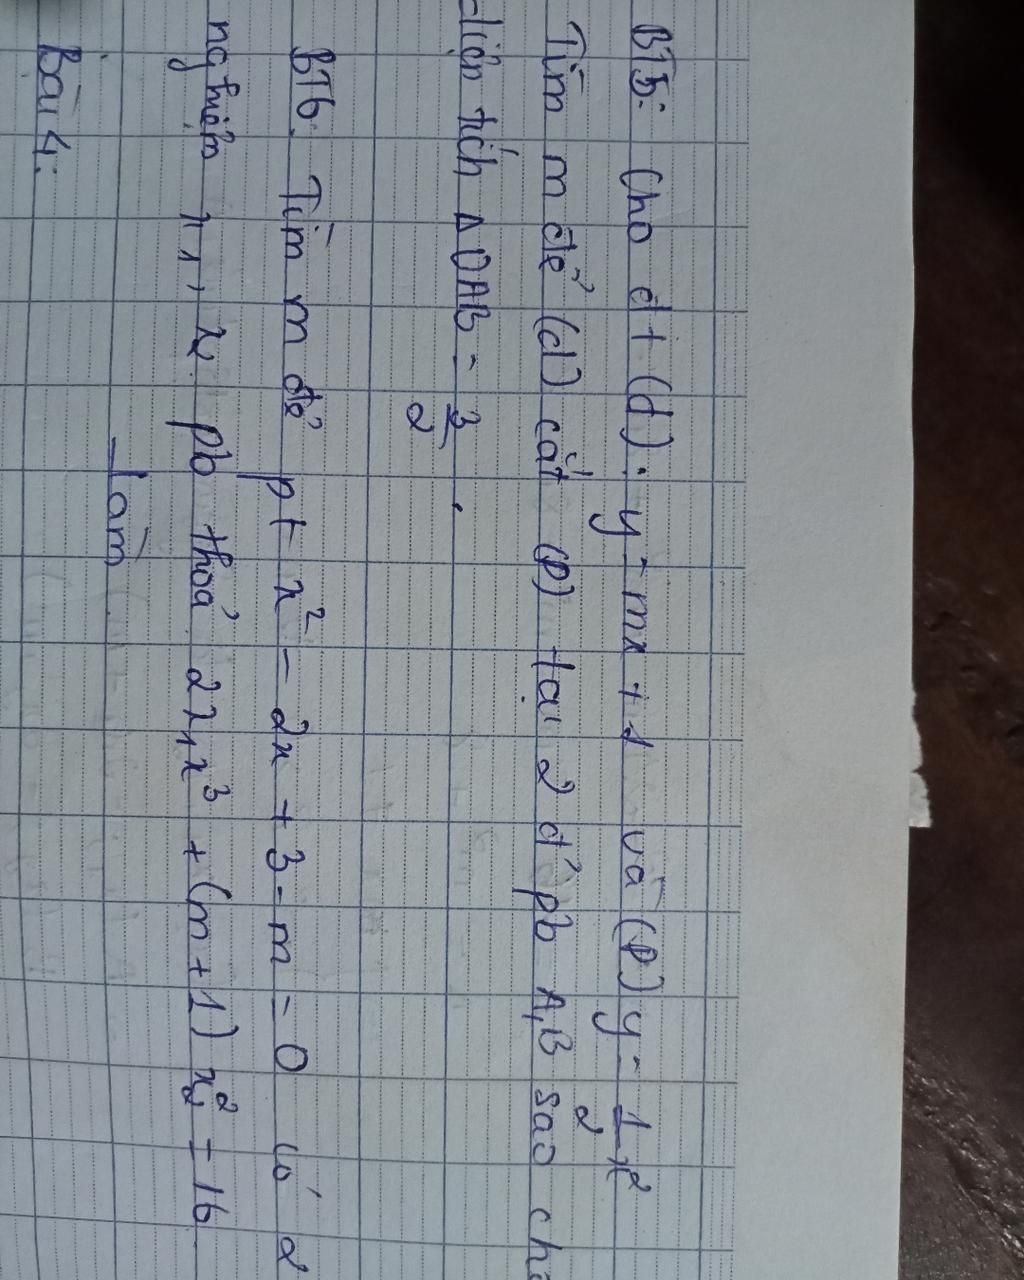 BT5: Cho đt (d): y = mx + 1 và (P) y = 1/2 x²
Tìm m để (d) cắt (P) tại 2 đ' pb A, B sao cho
diện tích Δ OAB = 3/2.
BT6: Tìm m để pt x² - 2x + 3 - m = 0 có 2
nghiệm x₁, x₂ pb thoả 2x₁x³ + (m+1) x₂² = 16
Làm
Bài 4: